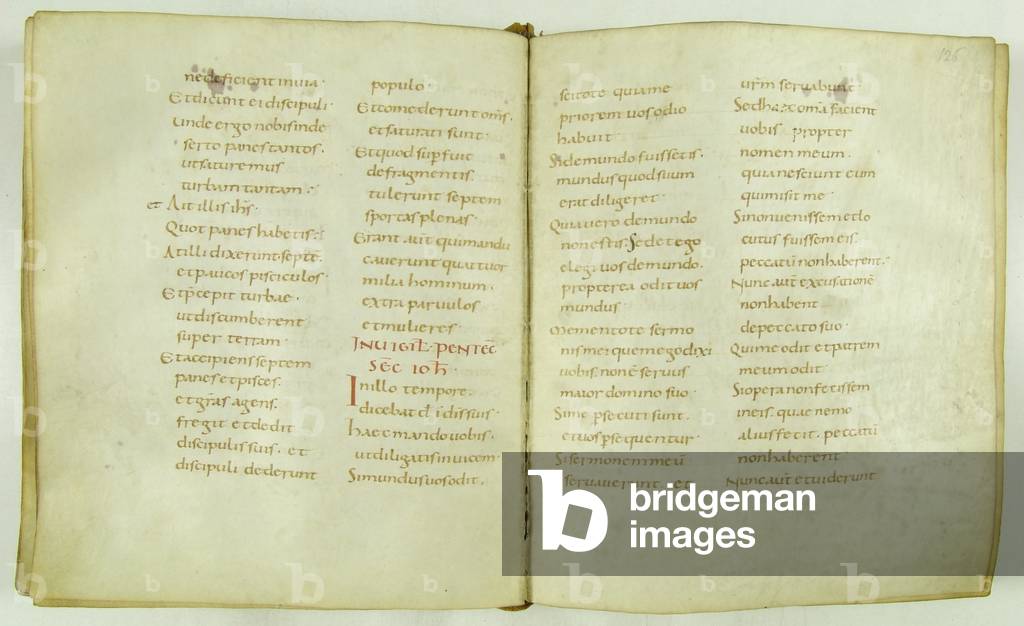 ne deficiant in via·
Et dicunt ei discipuli·
unde ergo nobis inde
serto panes tantos·
ut saturemus
turbam tantam·
et Ait illis ihs·
Quot panes habetis·
At illi dixerunt· septe·
et paucos pisciculos·
Et pcepit turbae·
ut discumberent
super terram·
Et accipiens septem
panes et pisces·
et gras agens·
fregit et dedit
discipulis suis· et
discipuli dederunt
populo·
Et comederunt oms·
et saturati sunt·
Et quod supfuit
de fragmentis·
tulerunt septem
sportas plenas·
Erant aut qui mandu
caverunt quattuor
milia hominum·
extra parvulos
et mulieres·
IN VIGIL· PENTEC
SEC IOH·
In illo tempore·
dicebat discipulis suis·
haec mando vobis·
ut diligatis invicem·
Si mundus vos odit·
126
scitote quia me
priorem vobis odio
habuit·
Si de mundo fuissetis·
mundus quod suum
erat diligeret·
Quia vero de mundo
non estis· Sed ego
elegi vos de mundo·
propterea odit vos
mundus·
Mementote sermo
nis mei quem ego dixi
vobis· non e servus
maior domino suo·
Si me psecuti sunt·
et vos psequentur·
Si sermonem meu
servaverunt· et
urm servabunt·
Sed haec oma facient
vobis propter
nomen meum·
quia nesciunt eum
qui misit me·
Si non venissem et lo
cutus fuissem eis·
peccatu non haberent·
Nunc aut excusatione
non habent
de peccato suo·
Qui me odit et patrem
meum odit·
Si opera non fecissem
in eis· quae nemo
alius fecit· peccatu
non haberent·
Nunc aut et viderunt
b bridgeman
images